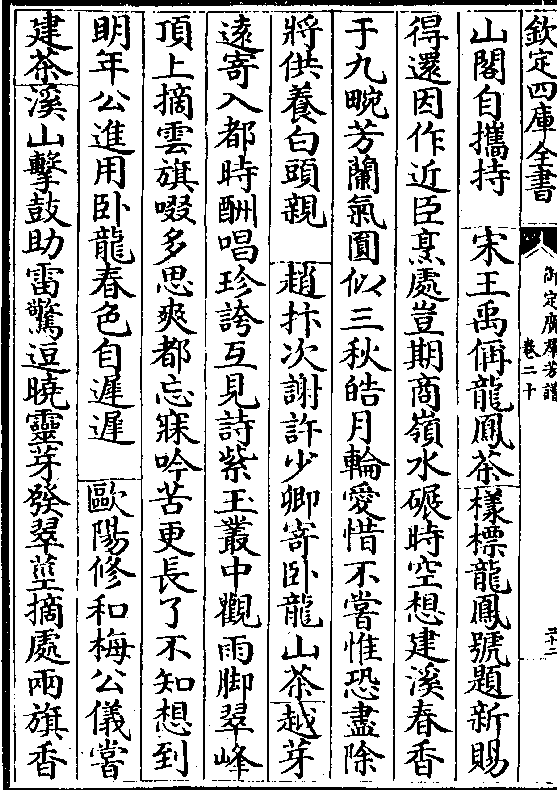 欽定四庫全書
御定廣羣芳譜
卷二十
山閣自攜持　宋王禹偁龍鳳茶樣標龍鳳號題新賜
得還因作近臣烹處豈期商嶺水碾時空想建溪春香
于九畹芳蘭氣圓似三秋皓月輪愛惜不嘗惟恐盡除
將供養白頭親　趙抃次謝許少卿寄卧龍山茶越芽
遠寄入都時酬唱珍誇互見詩紫玉叢中觀雨脚翠峰
頂上摘雲旗啜多思爽都忘寐吟苦更長了不知想到
明年公進用卧龍春色自遲遲　歐陽修和梅公儀嘗
建茶溪山擊鼓助雷驚逗曉靈芽發翠莖摘處兩旗香